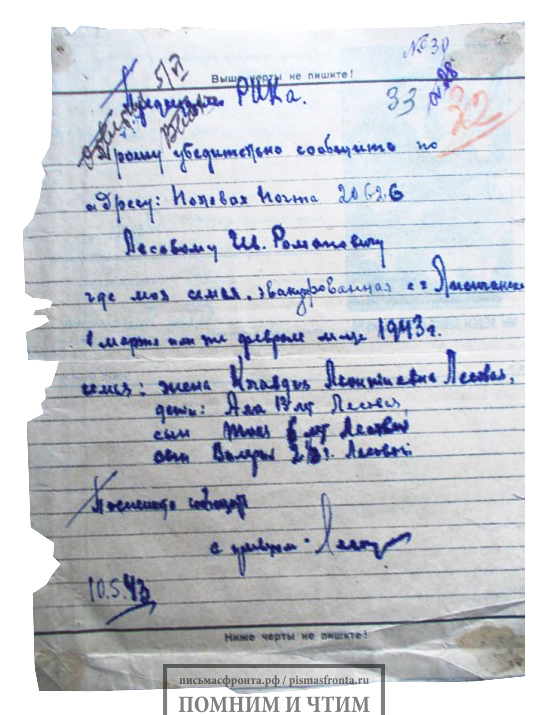 № 30
5/VI
Выше черты не пишите!
РИКа.
33
32
Прошу убедительно сообщить по
адресу: Полевая Почта 20626
Лесовому Ив. Романовичу
где моя семья, эвакуированная с г.
в марте или же феврале м-це 1943 г.
семья: жена Клавдия Леонтиевна Лесовая,
дети: Алла 13 лет Лесовая
сын 6 лет Лесовой
сын Валерий Лесовой
сообщить
с приветом
10.5.43
Ниже черты не пишите!
письмасфронта.рф / pismasfronta.ru
ПОМНИМ И ЧТИМ